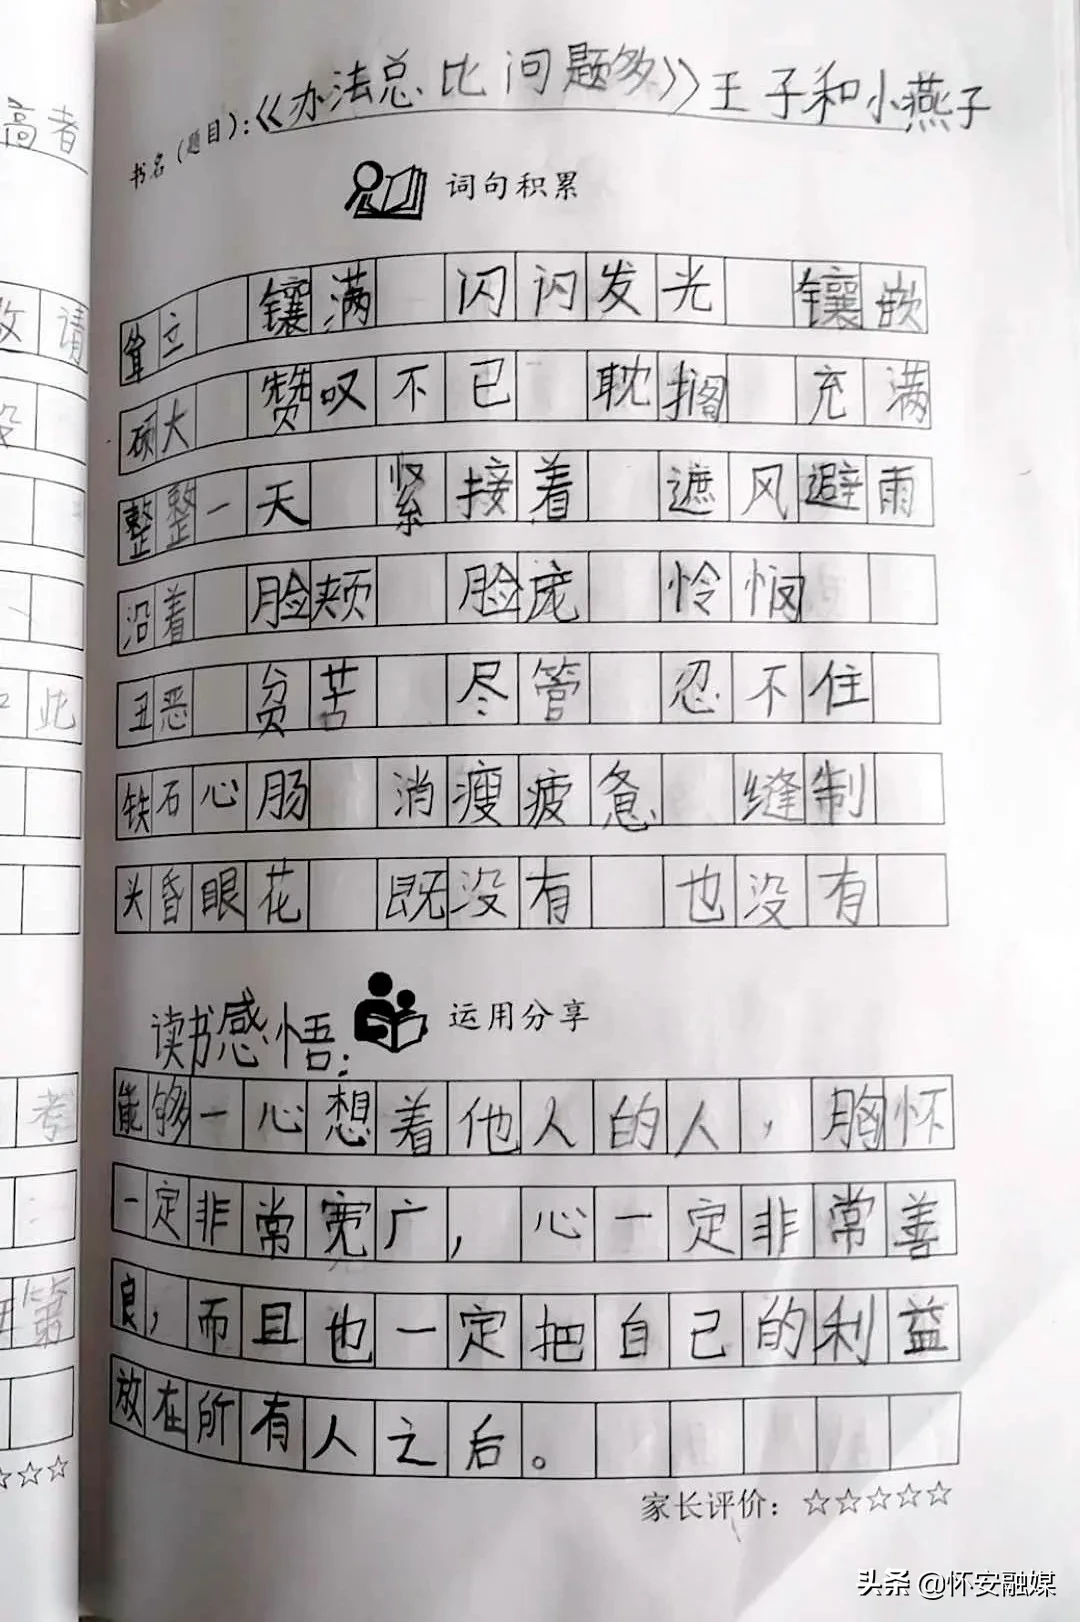 高者
书名(题目):《办法总比问题多》王子和小燕子
词句积累
耸立 镶满 闪闪发光 镶嵌
硕大 赞叹不已 耽搁 充满
整整一天 紧接着 遮风避雨
沿着 脸颊 脸庞 怜悯
丑恶 贫苦 尽管 忍不住
铁石心肠 消瘦疲惫 缝制
头昏眼花 既没有 也没有
读书感悟: 运用分享
能够一心想着他人的人,胸怀
一定非常宽广,心一定非常善
良,而且也一定把自己的利益
放在所有人之后。
家长评价:☆☆☆☆☆
请
此
考
第
☆☆☆
头条 @怀安融媒